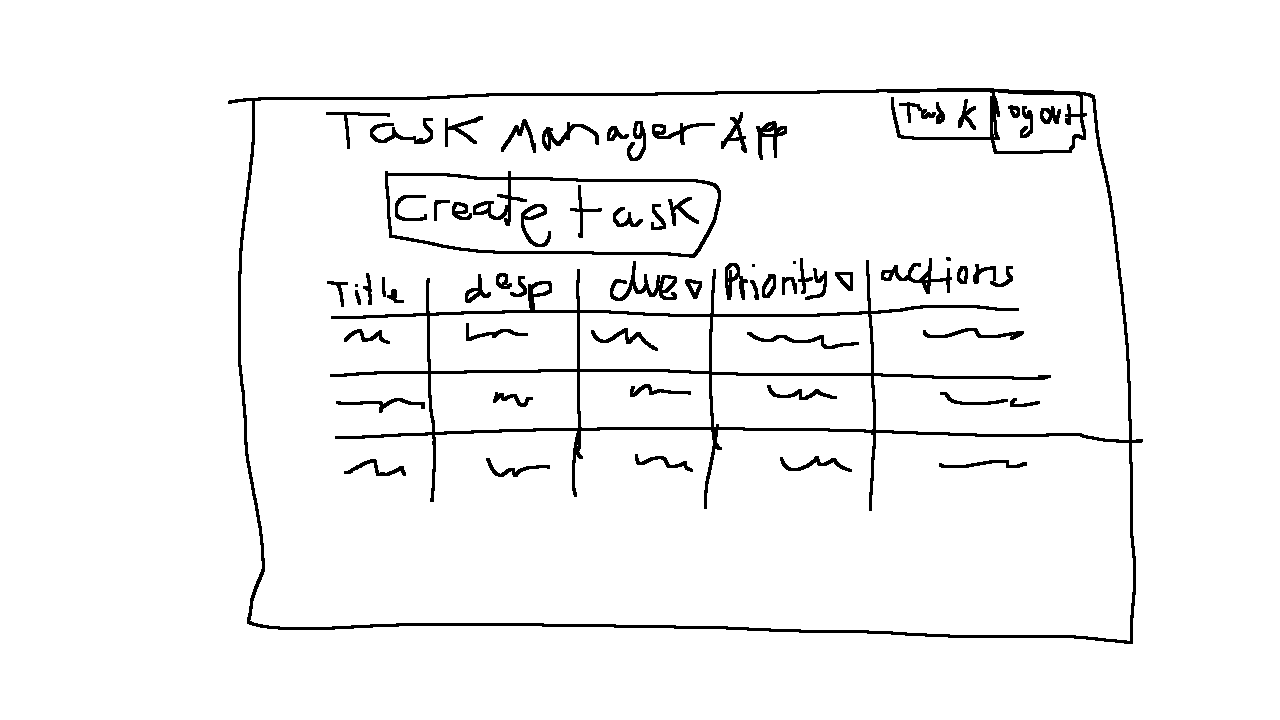 Task Manager App
Task
Logout
Create task
Title desp due Priority actions